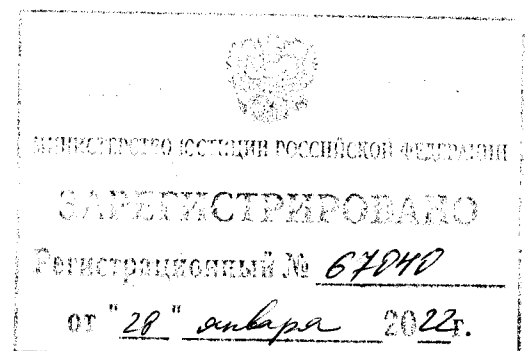 МИНИСТЕРСТВО ЮСТИЦИИ РОССИЙСКОЙ ФЕДЕРАЦИИ
ЗАРЕГИСТРИРОВАНО
Регистрационный № 67040
от "28" января 2022г.